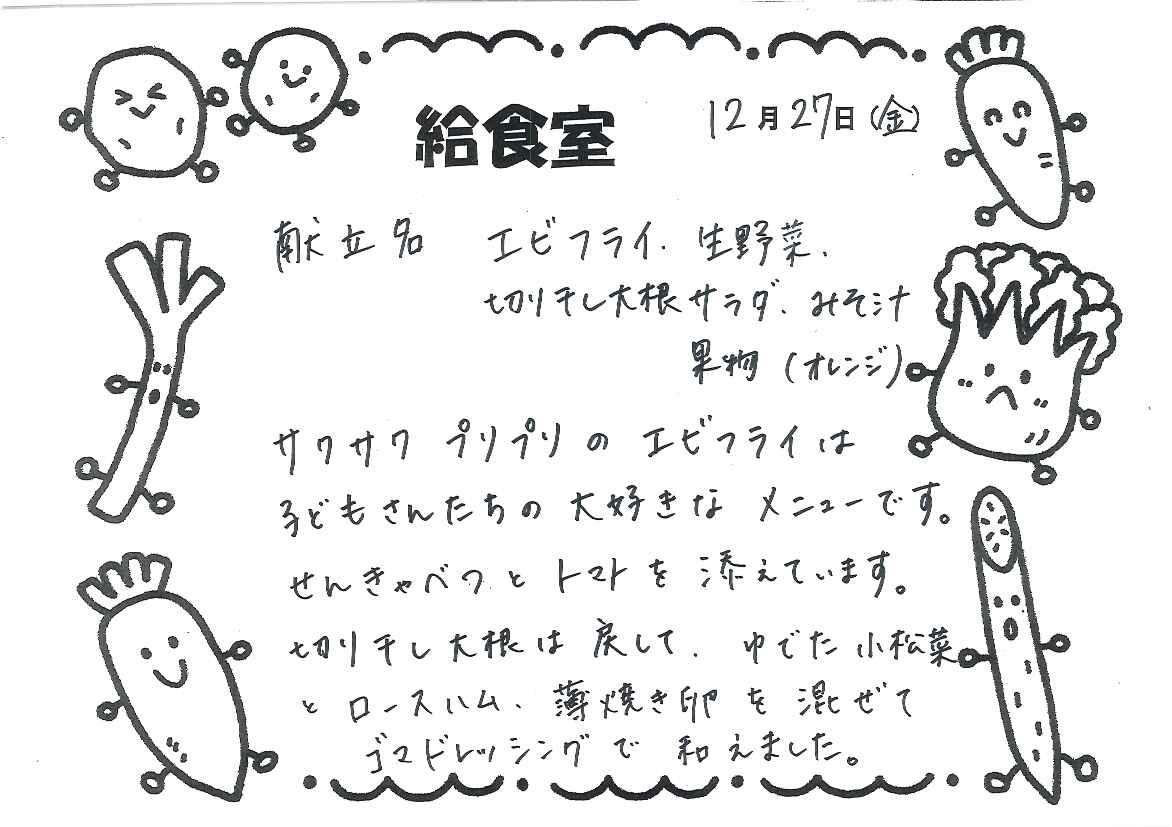 給食室
12月27日(金)
献立名 エビフライ、生野菜、
切り干し大根サラダ、みそ汁
果物(オレンジ)
サクサクプリプリのエビフライは
子どもさんたちの大好きなメニューです。
せんきゃべクとトマトを添えています。
切り干し大根は戻して、ゆでた小松菜
とロースハム、薄焼き卵を混ぜて
ゴマドレッシングで和えました。